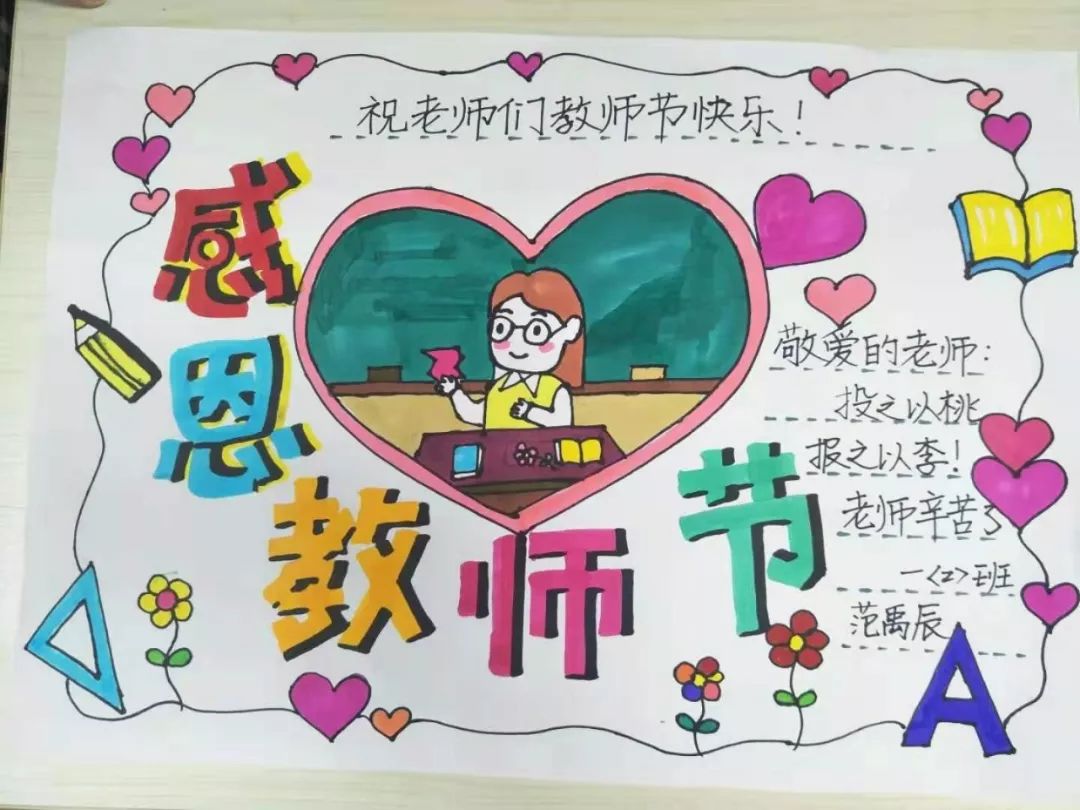 祝老师们教师节快乐！
感恩教师节
敬爱的老师：
投之以桃
报之以李！
老师辛苦了
一<2>班
范禹辰
A